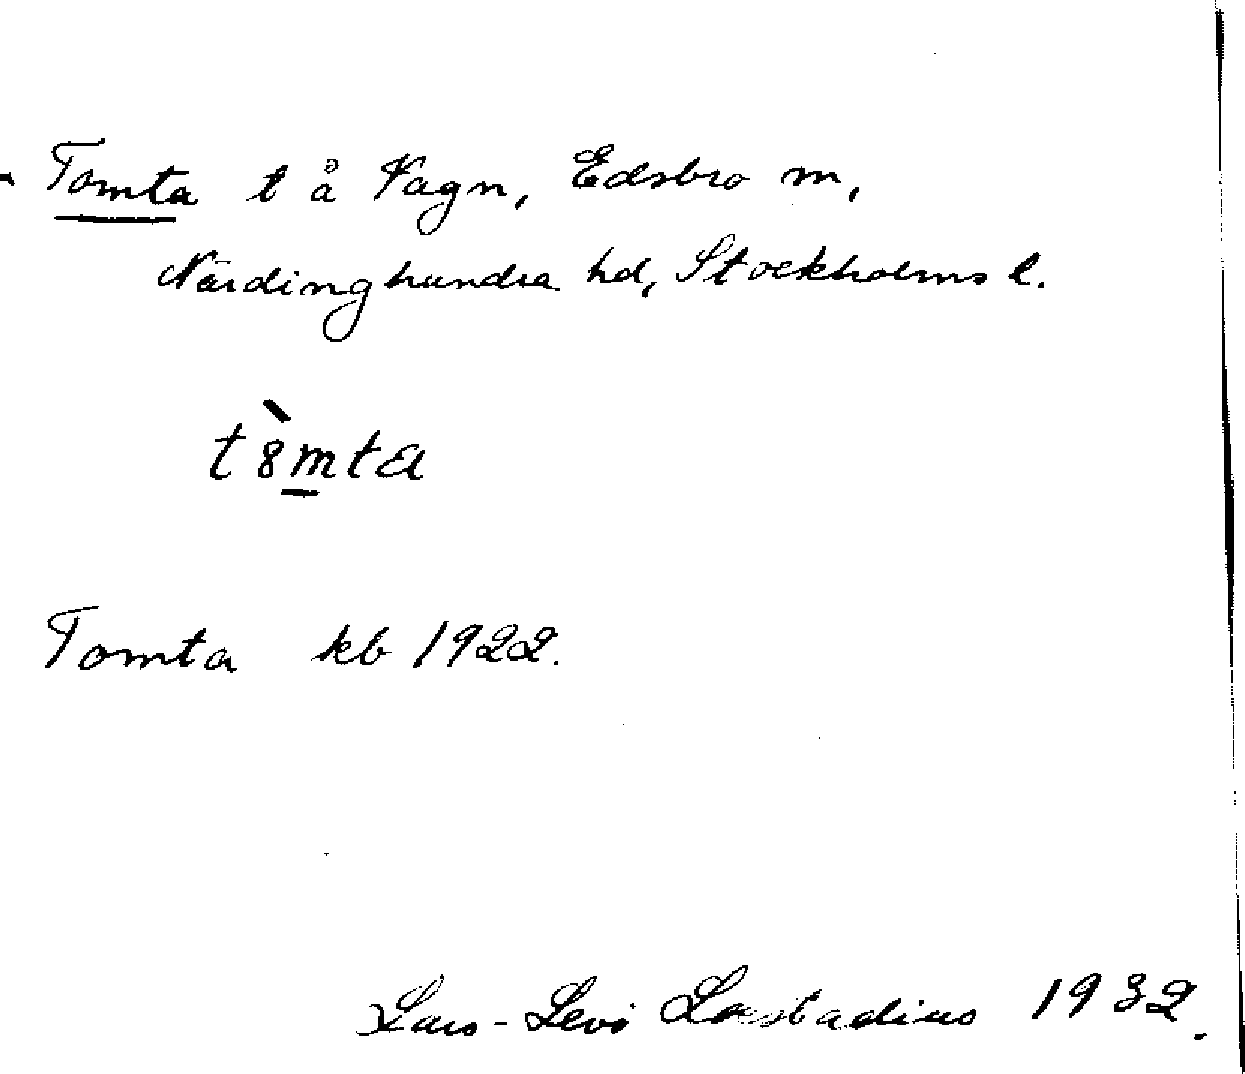 Tomta t å Vagn, Edsbro sn,
Närdinghundra hd, Stockholms l.
tòmta
Tomta kb 1922.
Lars-Levi Læstadius 1932.